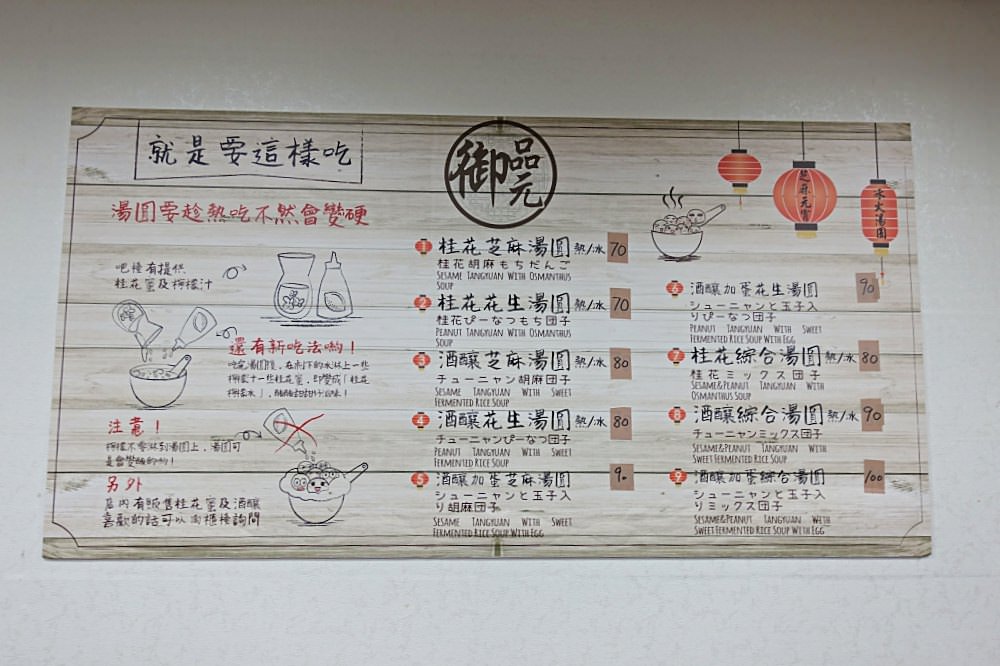 就是要這樣吃
湯圓要趁熱吃不然會變硬
吧檯有提供
桂花蜜及檸檬汁
還有新吃法喲！
吃完湯圓後，在剩下的冰淋上一些
檸檬汁一些桂花蜜，即變成「桂花
檸檬冰」，酸酸甜甜
注意！
檸檬不要淋到湯圓上，湯圓可
是會變酸的喲！
另外
店內有販售桂花蜜及酒釀
喜歡的話可以向櫃檯詢問
御品元
芝麻元宵
冰火湯圓
1 桂花芝麻湯圓 熱/冰 70
桂花胡麻もちだんご
SESAME TANGYUAN WITH OSMANTHUS
SOUP
2 桂花花生湯圓 熱/冰 70
桂花ぴーなつもち団子
PEANUT TANGYUAN WITH OSMANTHUS
SOUP
3 酒釀芝麻湯圓 熱/冰 80
チューニャン胡麻団子
SESAME TANGYUAN WITH SWEET
FERMENTED RICE SOUP
4 酒釀花生湯圓 熱/冰 80
チューニャンぴーなつ団子
PEANUT TANGYUAN WITH SWEET
FERMENTED RICE SOUP
5 酒釀加蛋芝麻湯圓 90
シューニャンと玉子入
り胡麻団子
SESAME TANGYUAN WITH SWEET
FERMENTED RICE SOUP WITH EGG
6 酒釀加蛋花生湯圓 90
シューニャンと玉子入
りぴーなつ団子
PEANUT TANGYUAN WITH SWEET
FERMENTED RICE SOUP WITH EGG
7 桂花綜合湯圓 熱/冰 80
桂花ミックス団子
SESAME&PEANUT TANGYUAN WITH
OSMANTHUS SOUP
8 酒釀綜合湯圓 熱/冰 90
チューニャンミックス団子
SESAME&PEANUT TANGYUAN WITH
SWEET FERMENTED RICE SOUP
9 酒釀加蛋綜合湯圓 100
シューニャンと玉子入
りミックス団子
SESAME&PEANUT TANGYUAN WITH
SWEET FERMENTED RICE SOUP WITH EGG